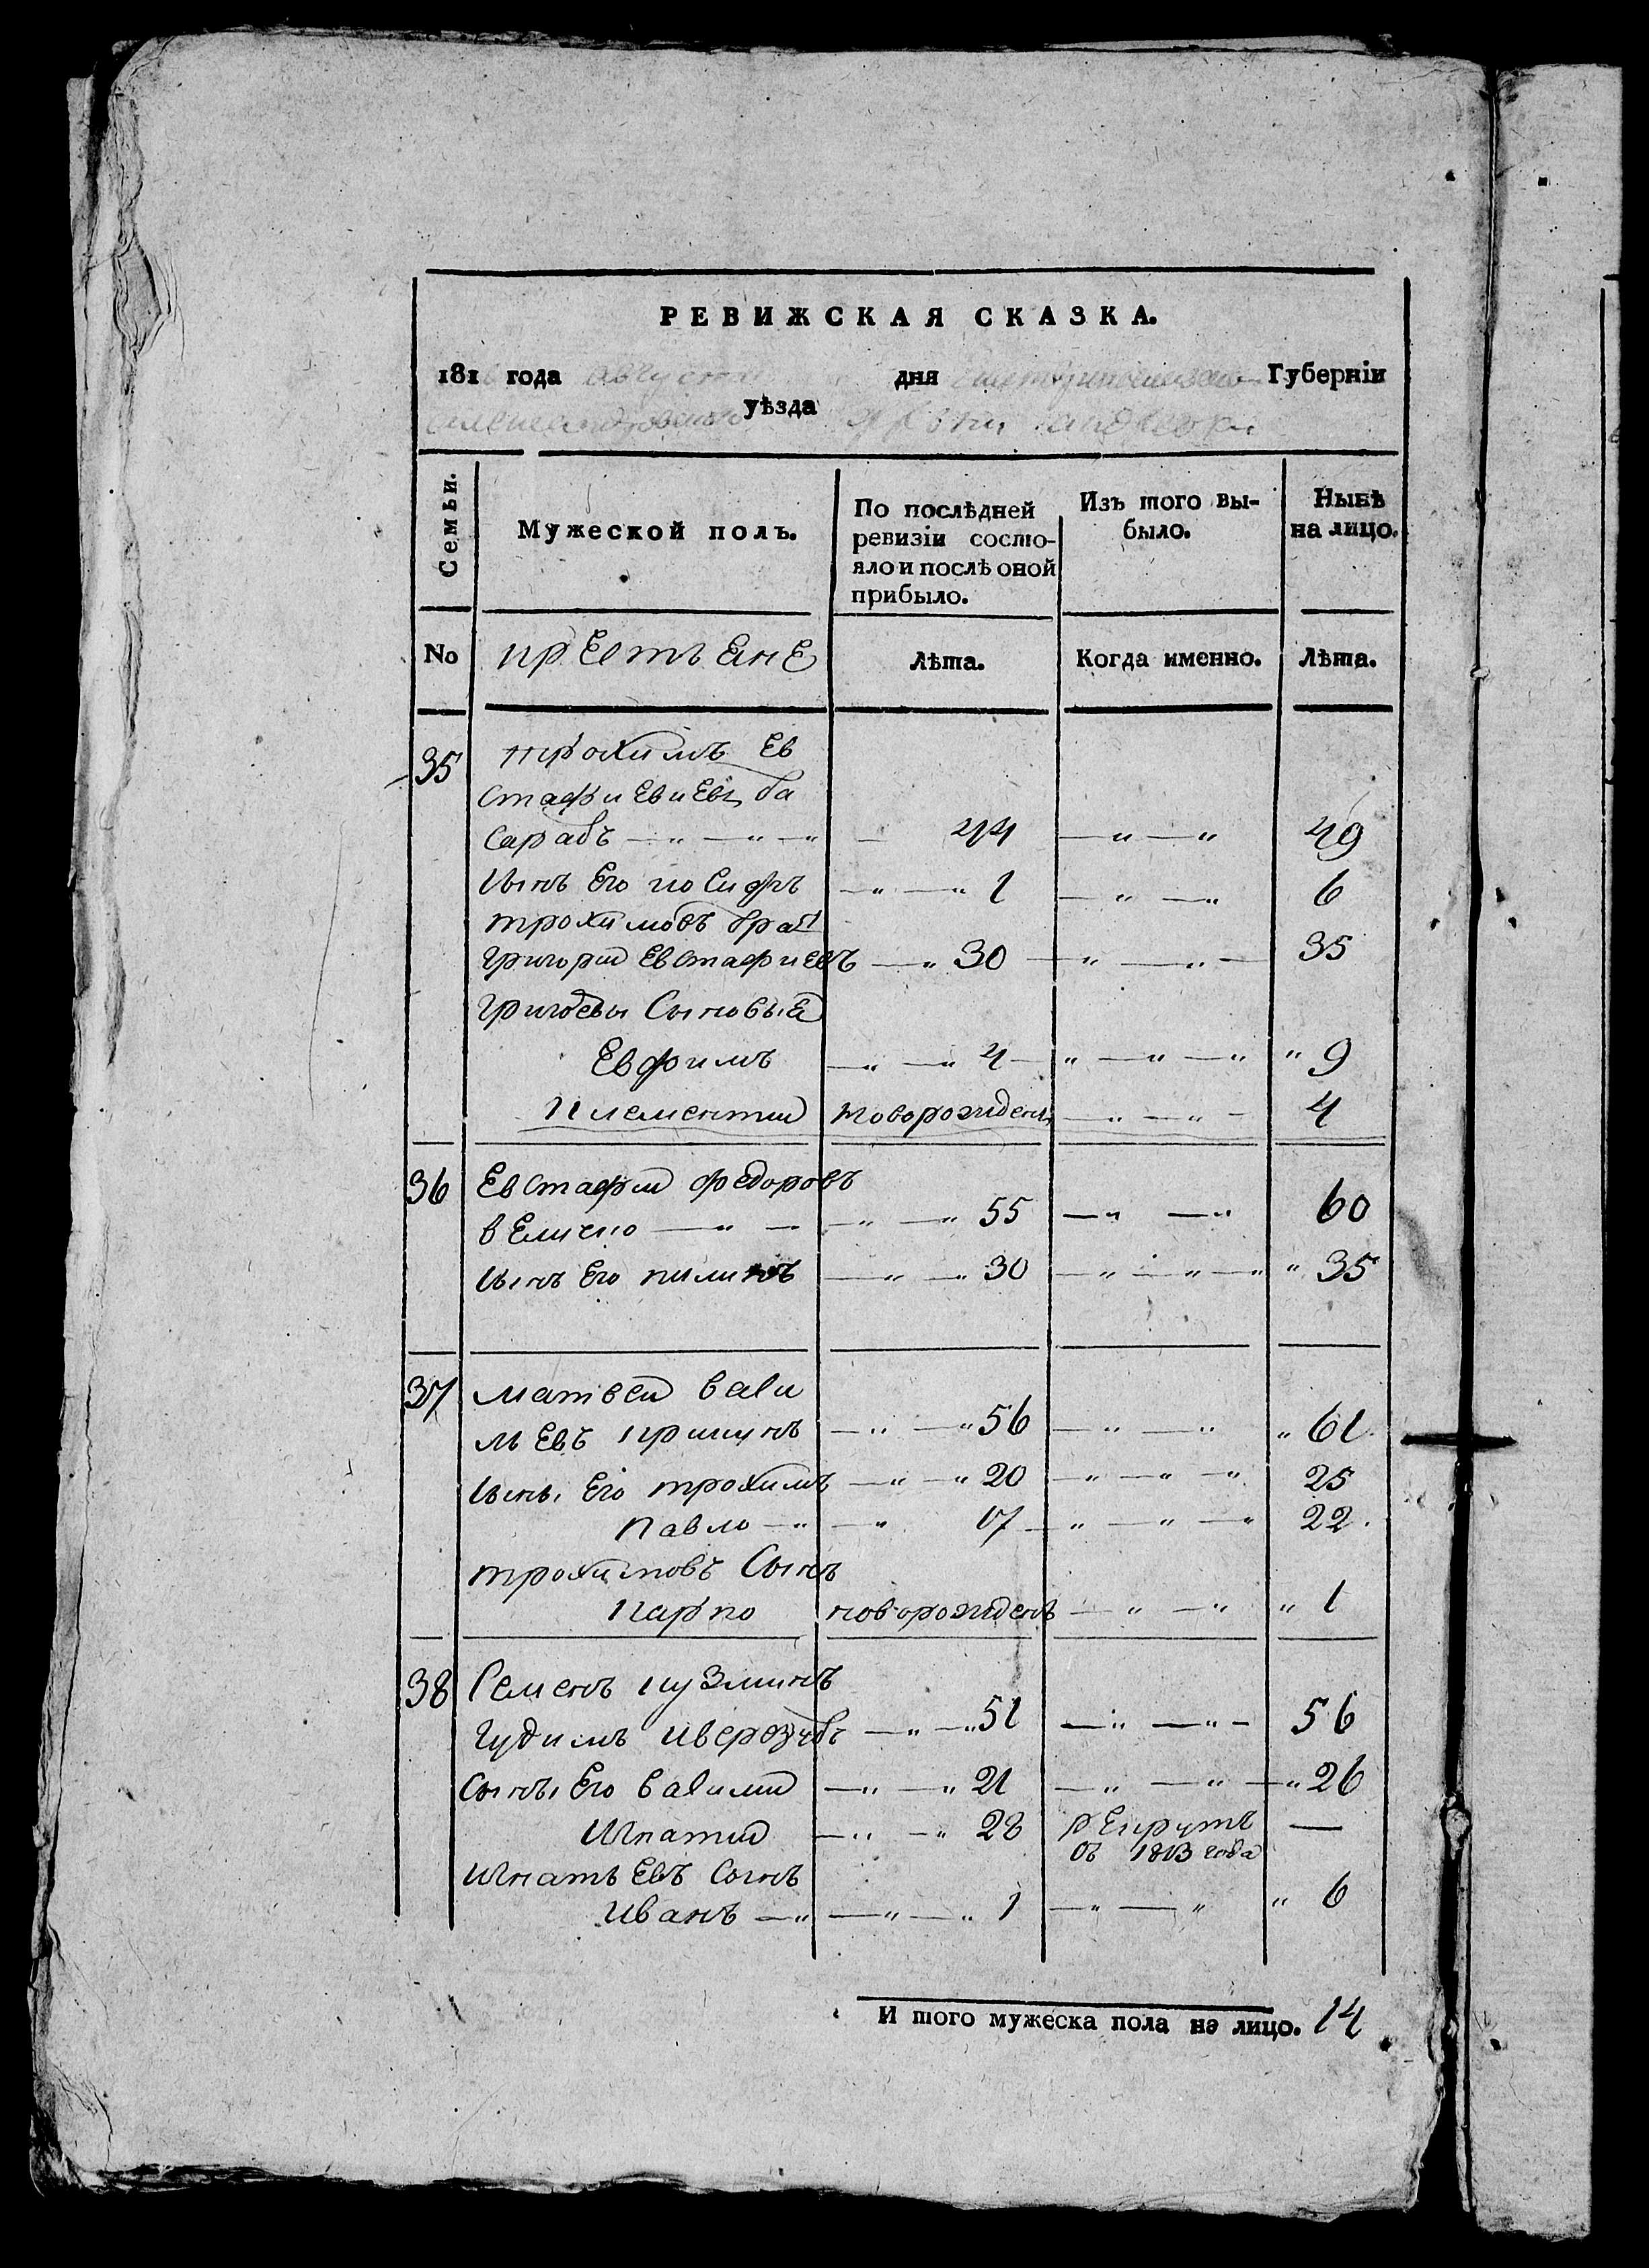 РЕВИЖСКАЯ СКАЗКА.
181 года августа дня Губерніи
уѣзда
Семьи.
Мужеской полъ.
По послѣдней ревизіи состояло и послѣ оной прибыло.
Изъ того выбыло.
Нынѣ на лицо.
No крестьяне Лѣта. Когда именно. Лѣта.
35 трохимъ Ев
стафиевиевъ ба
сарабъ — „ — „ — „ — 44 — „ — „ 49
сынъ Его иосифъ — „ — „ 1 — „ — „ 6
трохимовъ братъ
григорий Евстафиевъ — „ 30 — „ — „ — 35
григоревы сыновья
Евфимъ — „ — „ 4 — „ — „ — „ „ 9
Клементий новорожденъ — „ — „ — 4
36 Евстафий федоровъ
велично — „ — — „ — „ 55 — „ — „ 60
сынъ Его пилипъ — „ — „ 30 — „ — „ — „ „ 35
37 матвей васи
левъ — „ — „ 56 — „ — „ „ 61
сынъ Его трохимъ — „ — „ 20 — „ — „ — „ 25
Павло — „ — „ 17 — „ — „ — „ 22.
трохимовъ Сынъ
Карпо новорожденъ — „ — „ „ 1
38 Семенъ кузминъ
гудимъ — „ — „ 51 — „ — „ — 56
сынъ Его василий — „ — „ 21 — „ — „ — „ 26
Игнатий — „ — „ 28 рекрутъ —
съ 1813 года
Игнатьевъ Сынъ
Иванъ — „ — „ — „ 1 — „ — „ „ 6
И того мужеска пола на лицо. 14